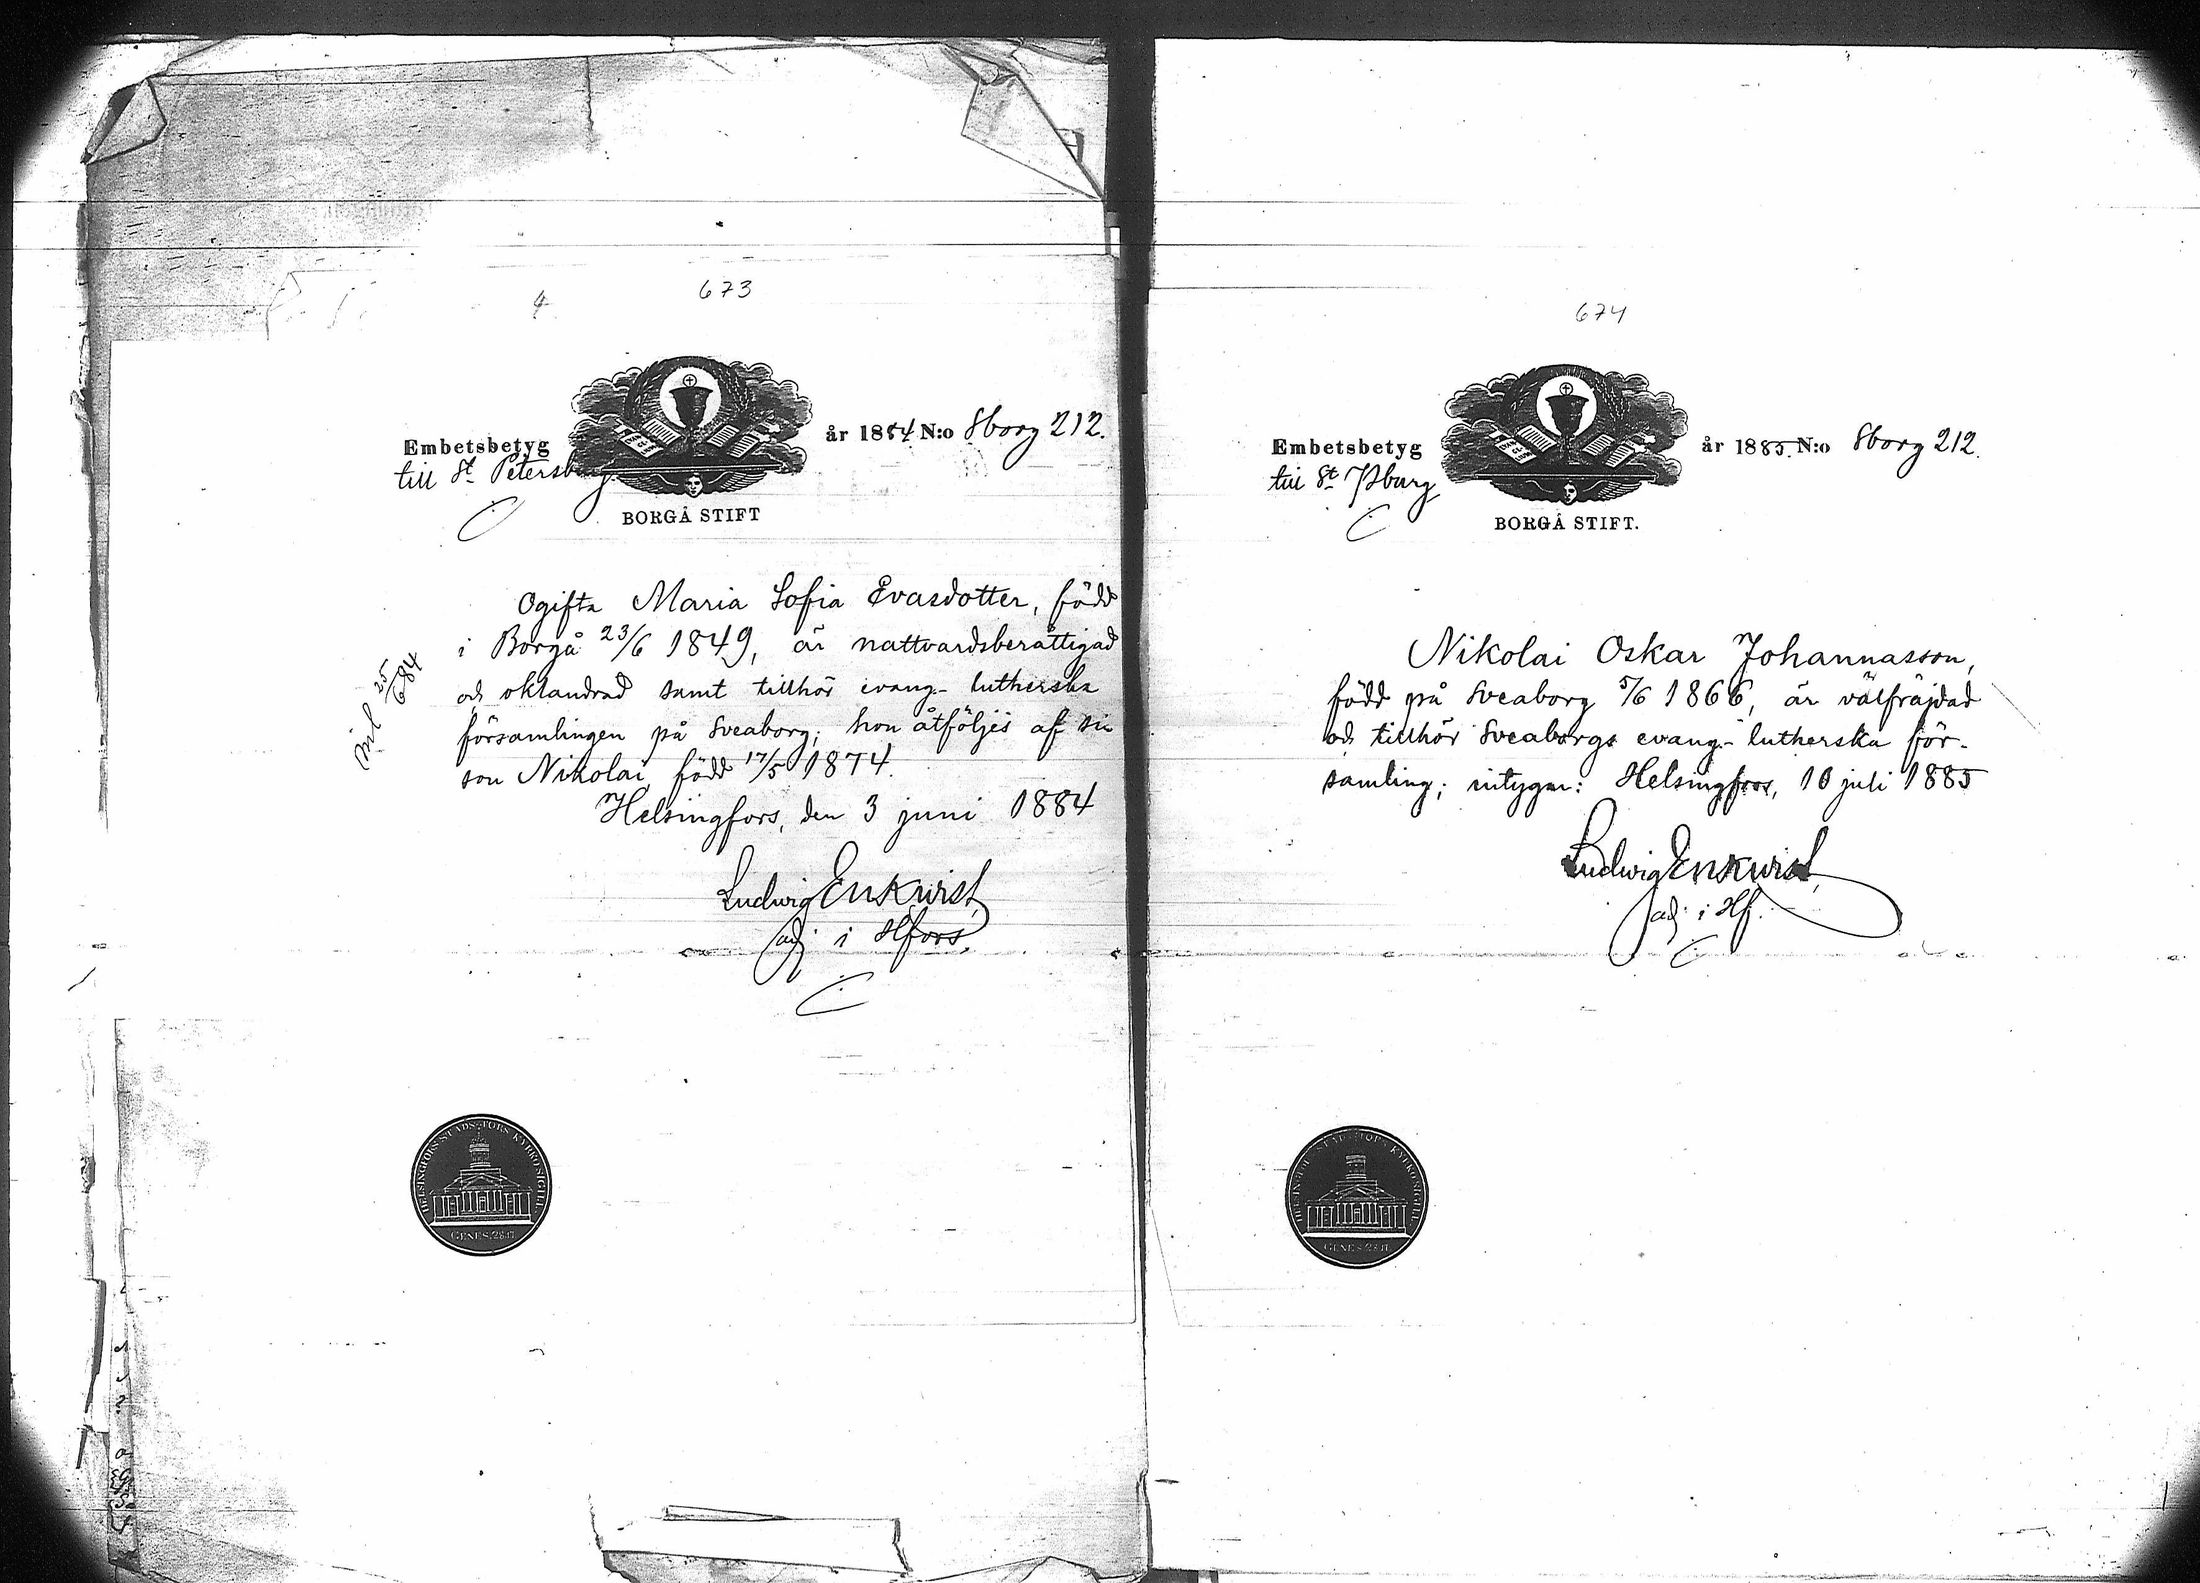 673
Embetsbetyg
år 1884 N:o Sborg 212.
till St Petersburg
BORGÅ STIFT
Ogifta Maria Sofia Evasdotter, född
i Borgå 23/6 1849, är nattvardsberättigad
och oklandrad samt tillhör evang.- lutherska
församlingen på Sveaborg; hon åtföljes af sin
son Nikolai, född 17/5 1874.
Helsingfors, den 3 juni 1884
Ludwig Enkwist,
adj. i Hfors.
25/6 84
HELSINGFORS STADS-FÖRS. KYRKO SIGILL.
GENES. 28.17.
674
Embetsbetyg
år 1885. N:o Sborg 212.
till St Pburg
BORGÅ STIFT.
Nikolai Oskar Johannasson,
född på Sveaborg 5/6 1866, är välfräjdad
och tillhör Sveaborgs evang.- lutherska för-
samling; intygar: Helsingfors, 10 juli 1885
Ludwig Enkwist,
adj. i Hf.
HELSINGFORS STADS-FÖRS. KYRKO SIGILL.
GENES. 28.17.